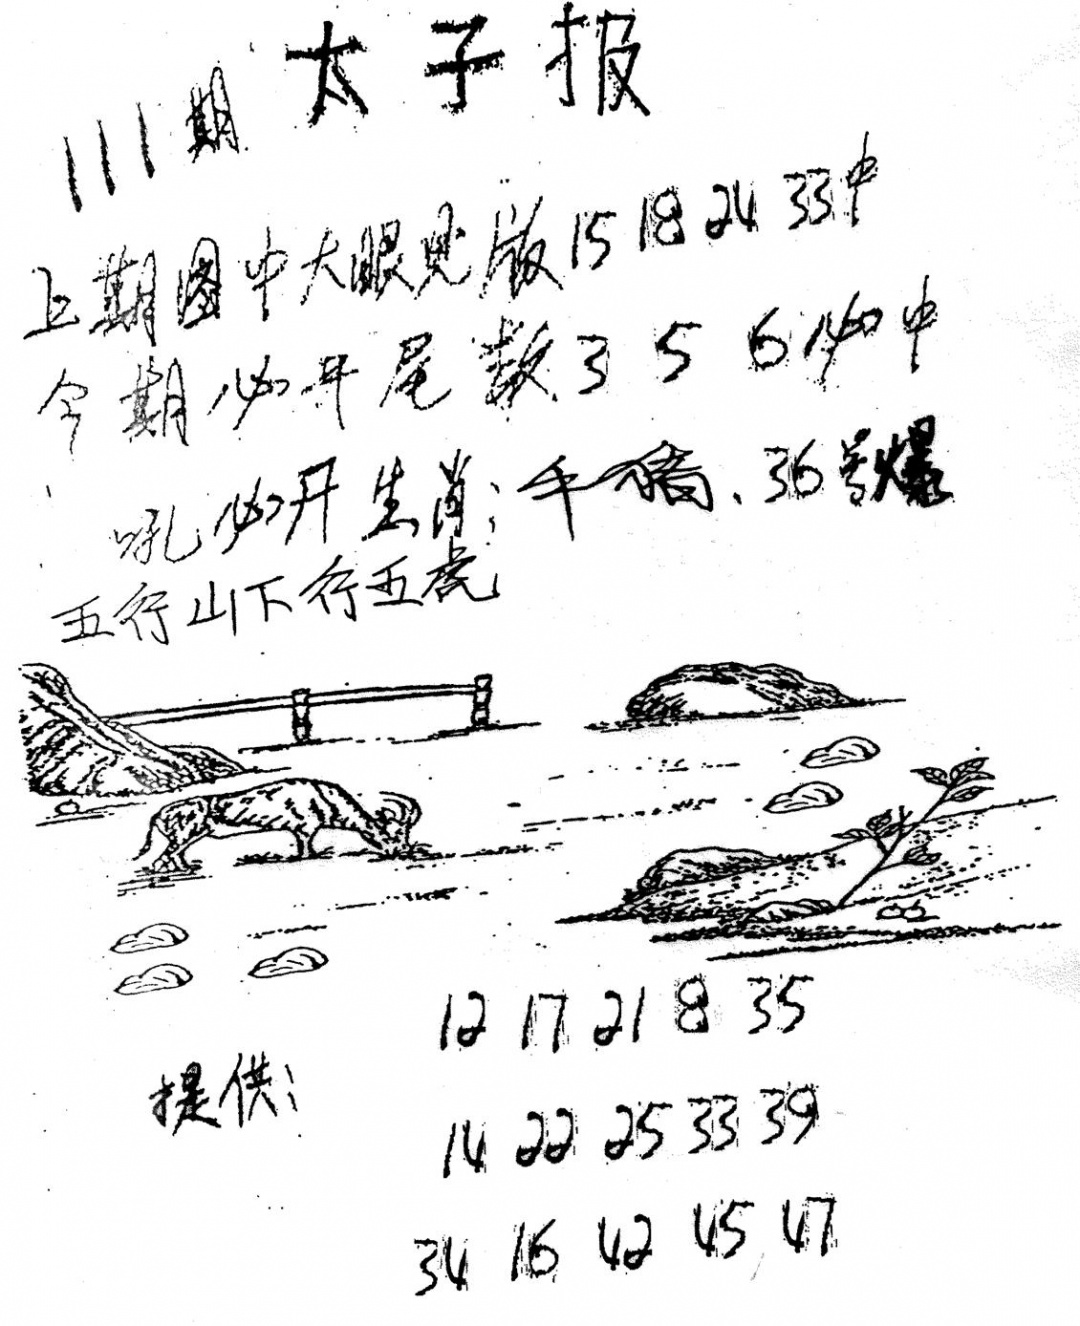 太子报
111期
上期图中大眼见版15 18 24 33中
今期必开尾数3 5 6必中
吼必开生肖：羊猪、36号爆
五行山下行五虎
12 17 21 8 35
提供：
14 22 25 33 39
34 16 42 45 47